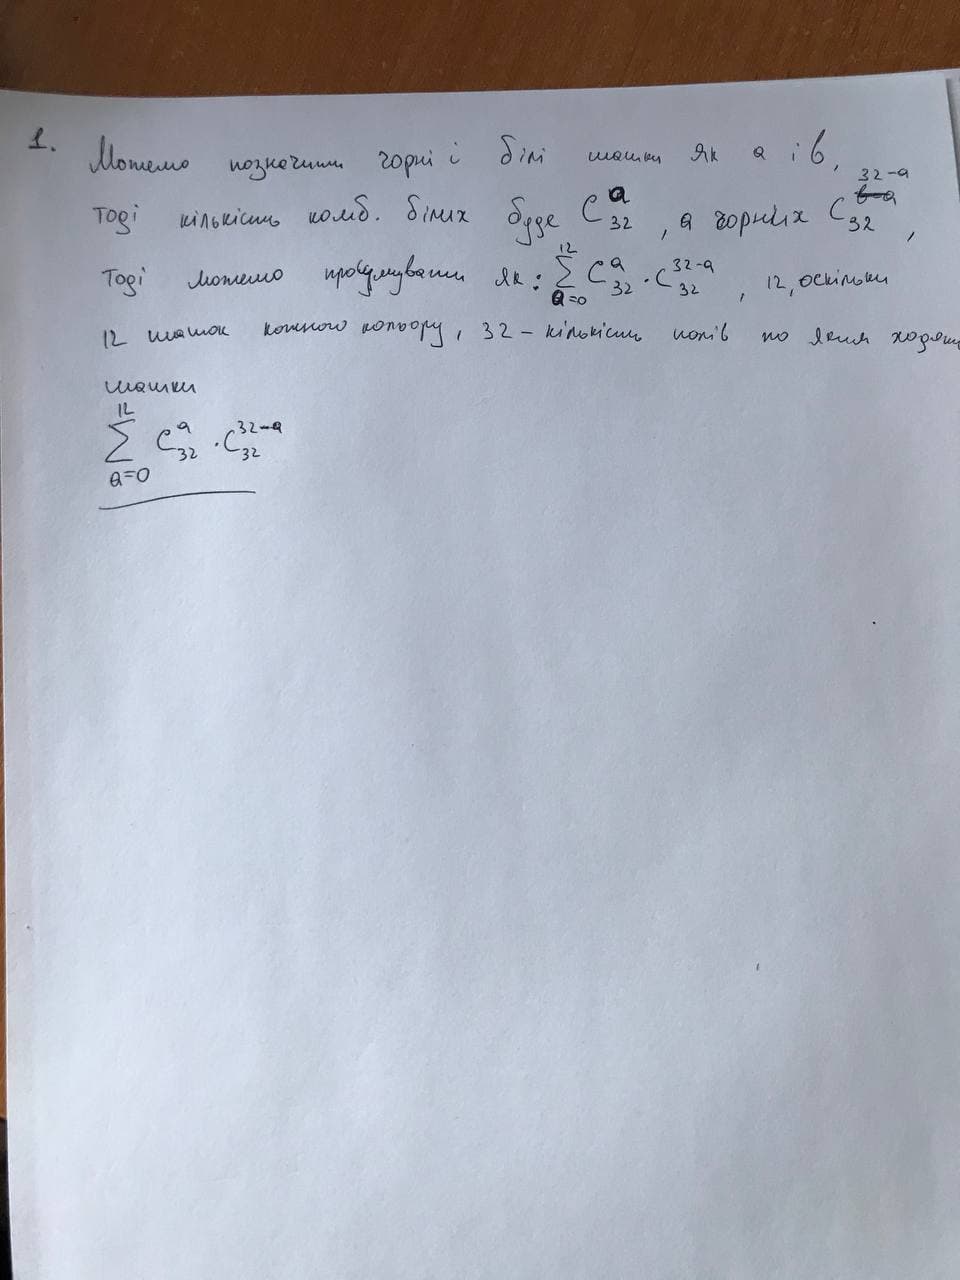 1. Можемо позначити чорні і білі шашки як a і b,
тоді кількість комб. білих буде C_{32}^{a}, а чорних C_{32}^{32-a},
Тоді можемо просумувати як: \sum_{a=0}^{12} C_{32}^{a} \cdot C_{32}^{32-a}, 12, оскільки
12 шашок кожного кольору, 32 – кількість полів по яким ходять
шашки
\sum_{a=0}^{12} C_{32}^{a} \cdot C_{32}^{32-a}